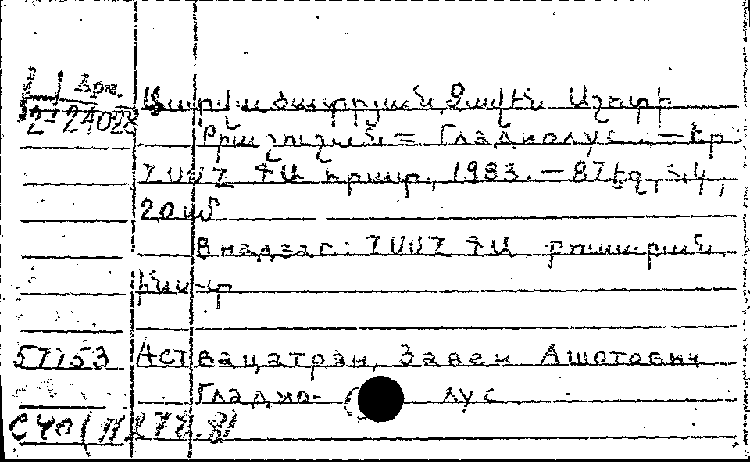 Арм.
2-24028
Աստվածատրյան, Զավեն Աշոտի
Թրաշուշան = Гладиолус. — Եր.
ՀՍՍՀ ԳԱ հրատ., 1983. — 87 էջ, նկ.,
20 սմ
В надзаг.: ՀՍՍՀ ԳԱ բուսաբան.
ինս-տ
57153 Аствацатрян, Завен Ашотович
Гладио- лус
С40 (